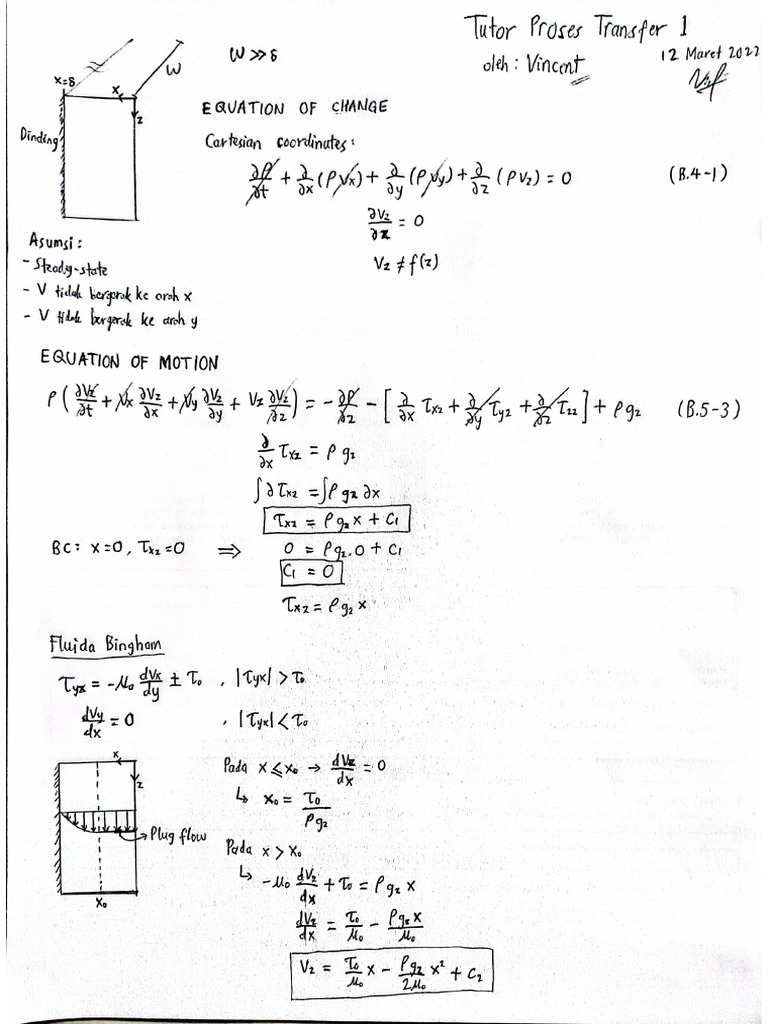 Tutor Proses Transfer 1
oleh : Vincent
12 Maret 2022
W >> δ
W
x=δ
x
z
Dinding
EQUATION OF CHANGE
Cartesian coordinates :
∂ρ/∂t + ∂/∂x (ρVx) + ∂/∂y (ρVy) + ∂/∂z (ρVz) = 0 (B.4-1)
∂Vz/∂z = 0
Vz ≠ f(z)
Asumsi :
- Steady-state
- V tidak bergerak ke arah x
- V tidak bergerak ke arah y
EQUATION OF MOTION
ρ(∂Vz/∂t + Vx ∂Vz/∂x + Vy ∂Vz/∂y + Vz ∂Vz/∂z) = -∂P/∂z - [∂/∂x τxz + ∂/∂y τyz + ∂/∂z τzz] + ρgz (B.5-3)
∂/∂x τxz = ρgz
∫∂τxz = ∫ρgz ∂x
τxz = ρgz x + C1
BC : x=0, τxz=0 ⇒ 0 = ρgz.0 + C1
C1 = 0
τxz = ρgz x
Fluida Bingham
τyx = -μ₀ dVx/dy ± τ₀ , |τyx| > τ₀
dVy/dx = 0 , |τyx| < τ₀
x
z
Plug flow
x₀
Pada x ≤ x₀ → dVz/dx = 0
↳ x₀ = τ₀/ρgz
Pada x > x₀
↳ -μ₀ dVz/dx + τ₀ = ρgz x
dVz/dx = τ₀/μ₀ - ρgz x/μ₀
Vz = τ₀/μ₀ x - ρgz/2μ₀ x² + C2